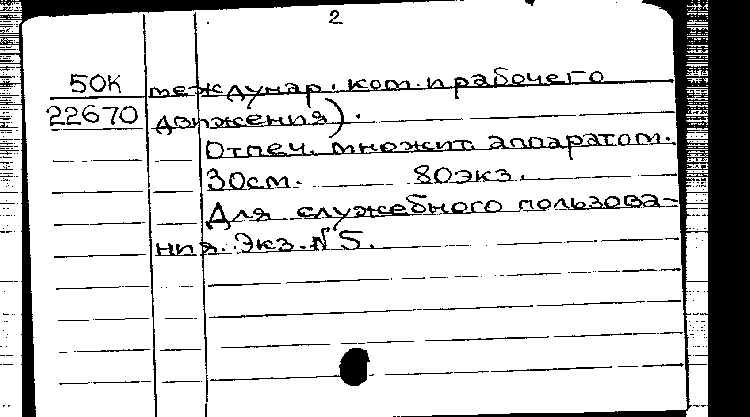 2
50К междунар. ком. и рабочего
22670 движения).
Отпеч. множит. аппаратом.
30см. 80экз.
Для служебного пользова-
ния. Экз. №5.